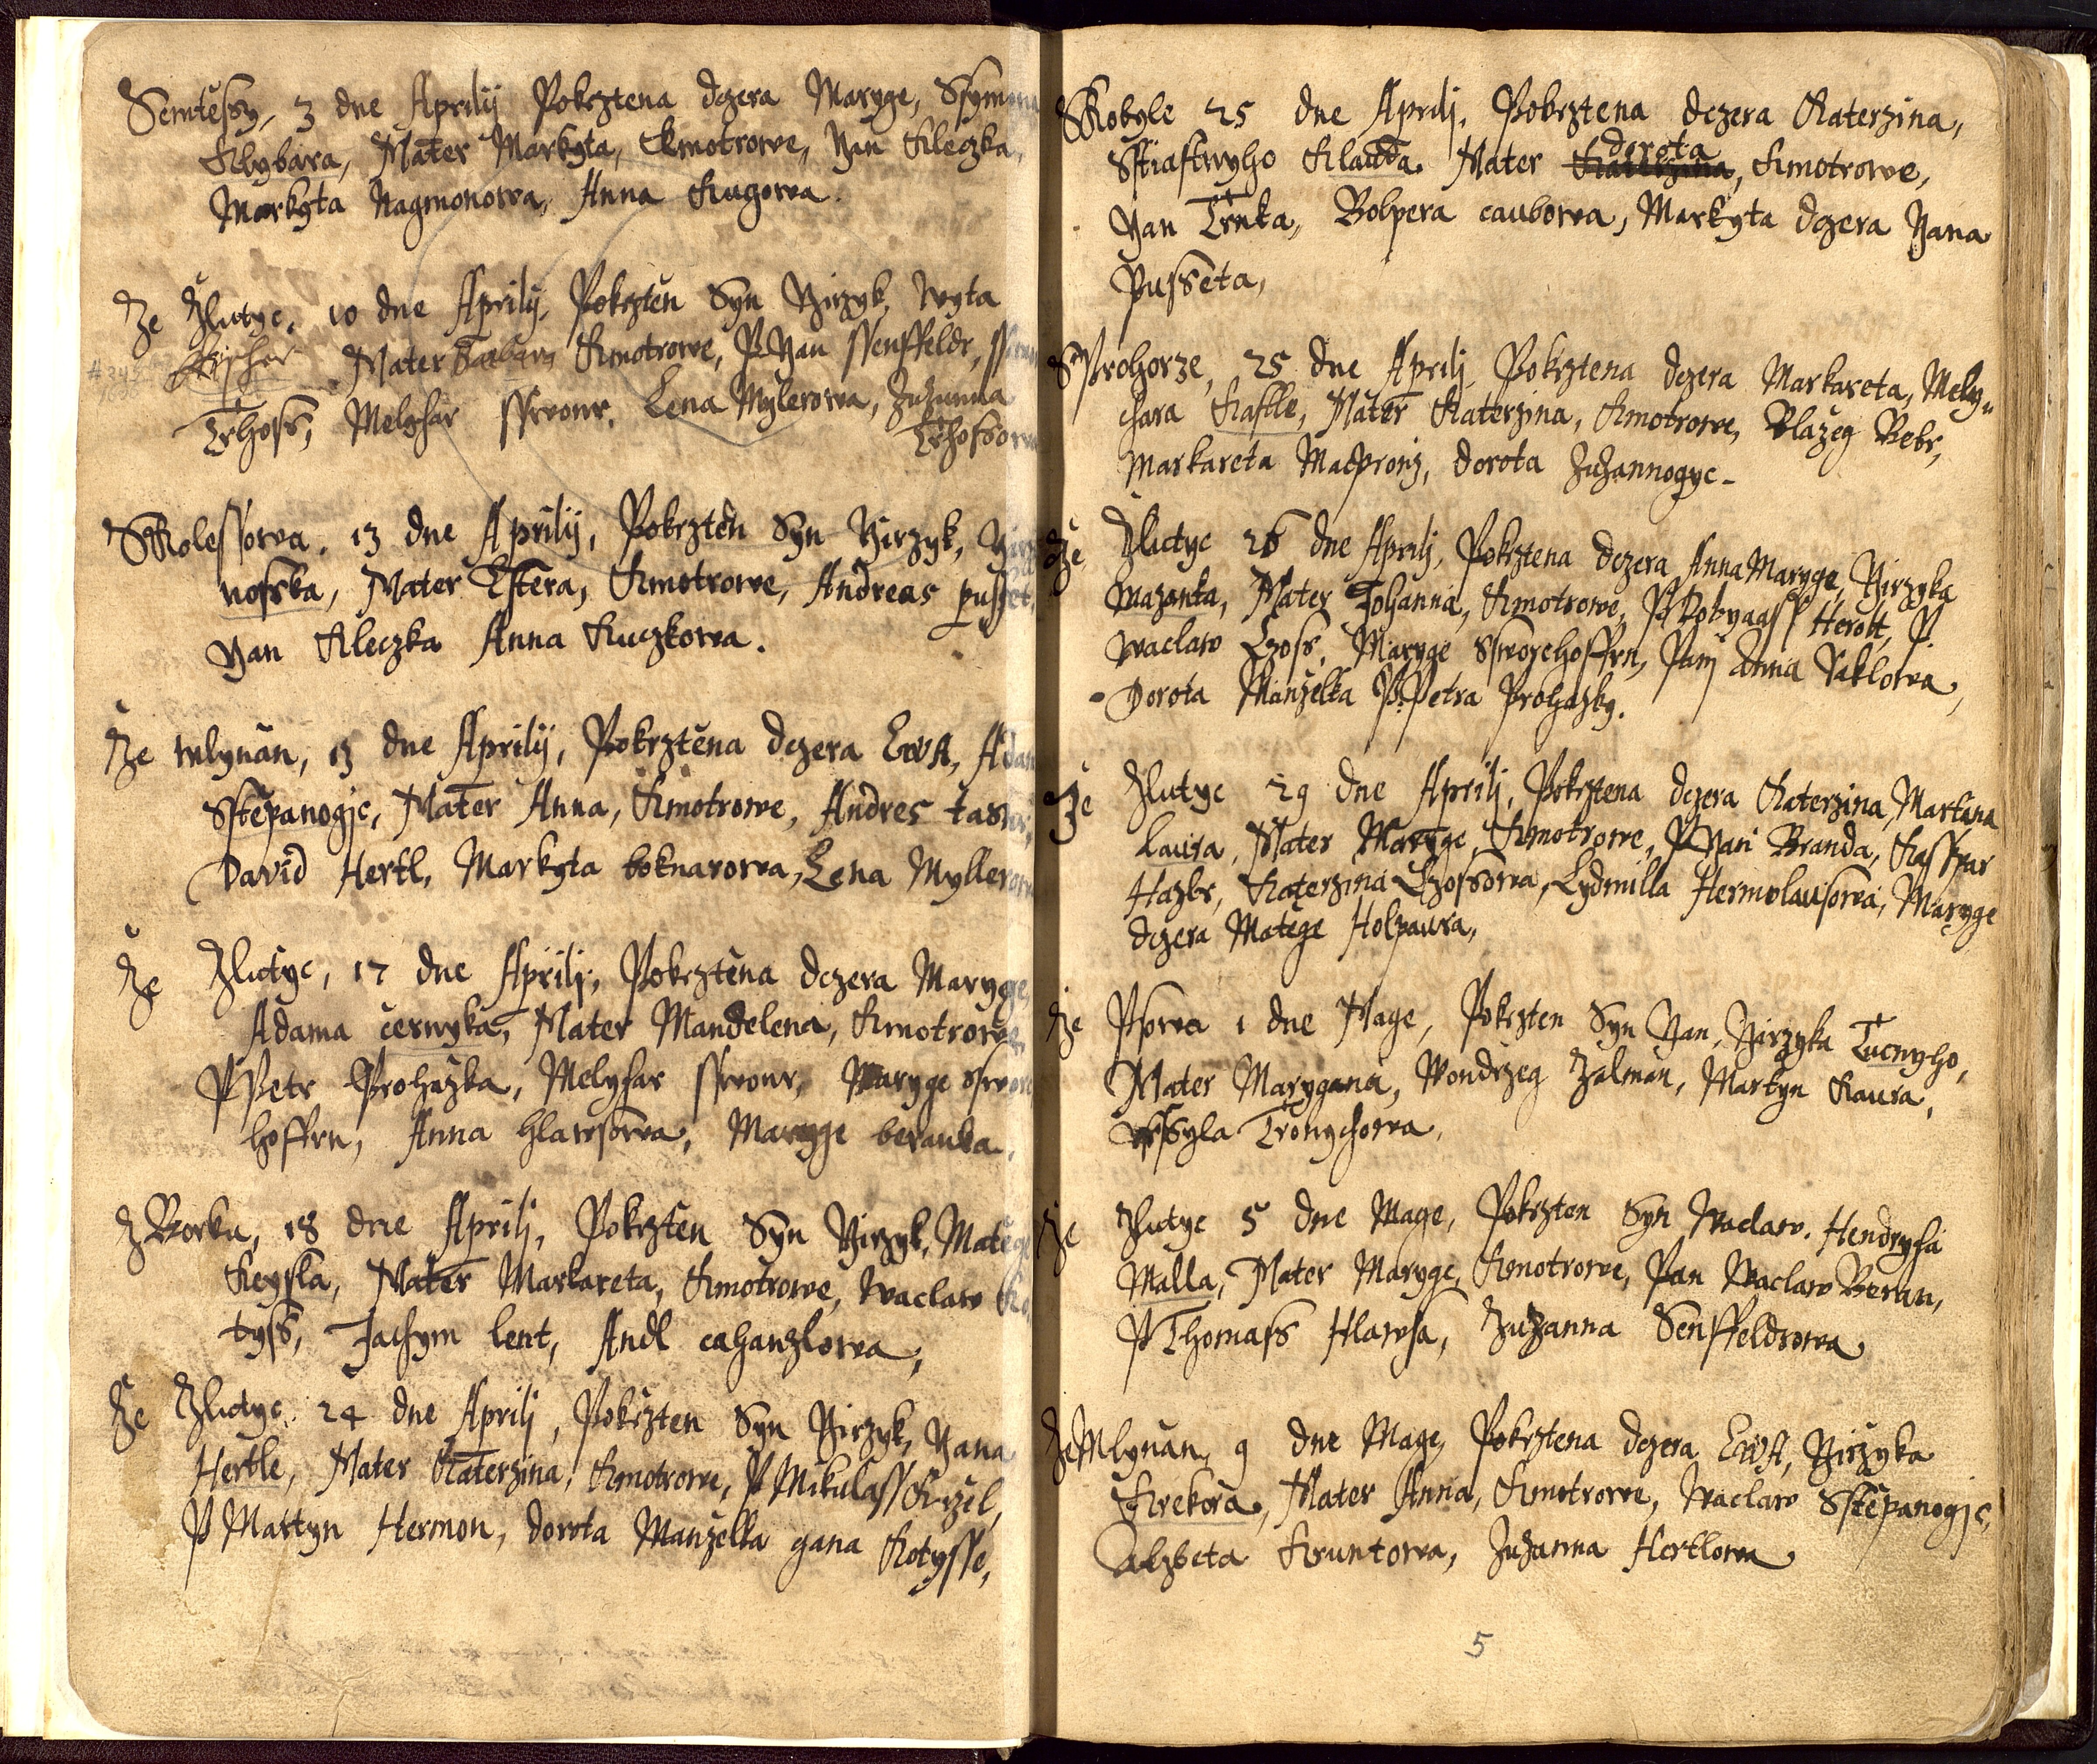 Semtessy, 3 dne Aprilij Pokrztena dczera Maryge, Ssymona
Rybara, Mater Markyta, Kmotrowe, Yan Kleczka,
Markyta Nagmonowa, Anna Kugowa.
Ze Zlutyc, 10 dne Aprilij, Pokrzten Syn Yirzyk, Wyta
Mater Barbara Kmotrowe, P Yan Ssenffeldr,
Trhoss, Melychar Lena Mylerowa, Zuzanna
Trhossowa
SKolessowa, 13 dne Aprilij, Pokrzten Syn Yirzyk,
nosska, Mater Estera, Kmotrowe, Andreas pusset,
Yan Kleczka Anna Kuczkowa.
Ze mlynan, 13 dne Aprilij, Pokrztena dczera EWA, Adam
Sstepanogic, Mater Anna, Kmotrowe, Andres
David Hertl, Markyta boknarowa, Lena Myllerowa
Ze Zlutyc, 17 dne Aprilj, Pokrztena dczera Maryge,
Adama cernyka, Mater Mandelena, Kmotrowe,
P Petr Prohazka, Melychar Maryge
hoffrn, Anna hlawsowa, Maryge beranka.
Z Borku, 18 dne Aprilj, Pokrzten Syn Yirzyk, Matege
Keysla, Mater Markareta, Kmotrowe, Waclaw Ko
tyss, Jachym lent, Andl cahanzlowa,
Ze Zlutyc. 24 dne Aprilj, Pokrzten Syn Yirzyk, Yana
Hertle, Mater Katerzina, Kmotrowe, P Mikulass
P Martyn Hermon, dorota Manzelka gana Kotysse,
SKobyle 25 dne Aprilj. Pokrztena dczera Katerzina,
Sstiastnyho Klauda Mater dorota Katerzina, Kmotrowe,
Yan Trnka, cauborwa, Markyta dczera Yana
Pusseta,
SProhorze, 25 dne Aprilj Pokrztena dczera Markareta, Mely=
chara Kastle, Mater Katerzina, Kmotrowe, Blazeg Bebr,
Markareta dorota Zuzannogyc-
Ze Zlutyc 26 dne Aprilj, Pokrztena dczera Anna Maryge, Yirzyka
Mazanka, Mater Johanna, Kmotrowe, P Herolt, P
Waclaw Maryge Panj Anna
Dorota Manzelka P. Petra Prohazky.
Ze Zlutyc 29 dne Aprilj, Pokrztena dczera Katerzina, Martana
Laura, Mater Maryge, Kmotrowe, P Yan Branda, Kasspar
Hazbr, Katerzina Lydmilla Hermolausowa, Maryge
dczera Matege Holpaura,
Ze Psowa 1 dne Mage, Pokrzten Syn Yan, Yirzyka Tucnyho,
Mater Marygana, Wondrzeg Zalman, Martyn Kaura,
Worssyla Tronychowa,
Ze Zlutyc 5 dne Mage, Pokrzten Syn Waclaw. Hendrycha
Malla, Mater Maryge, Kmotrowe, Pan Waclaw Beran,
P Thomass Hlawsa, Zuzanna Senffeldrowa
Ze Mlynan, 9 dne Mage, Pokrztena dczera EWA, Yirzyka
Krekora, Mater Anna, Kmotrowe, Waclaw Sstepanogic,
Alzbeta Kruntowa, Zuzanna Hertlowa
5